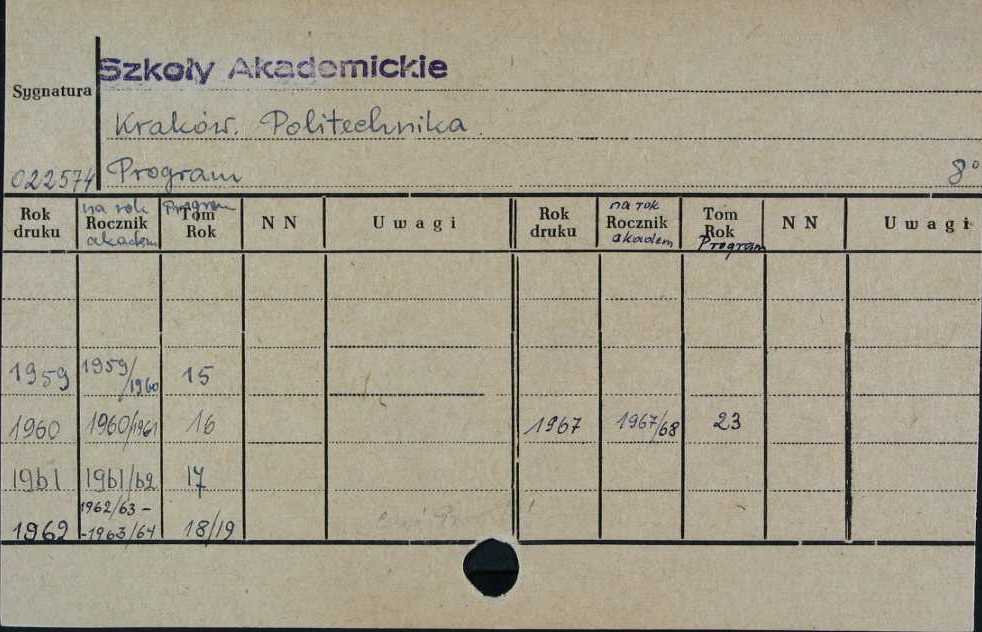 Szkoły Akademickie
Sygnatura
Kraków. Politechnika
022574 Program 8°
Rok druku na rok Rocznik akadem Program Tom Rok NN Uwagi Rok druku na rok Rocznik akadem Tom Rok Program NN Uwagi
1959 1959/1960 15
1960 1960/1961 16 1967 1967/68 23
1961 1961/62 17
1962 1962/63 - -1963/64 18/19